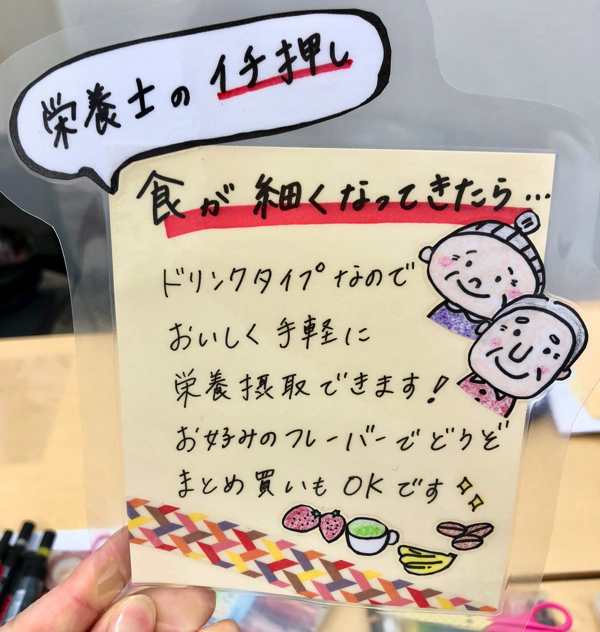 栄養士のイチ押し
食が細くなってきたら…
ドリンクタイプなので
おいしく手軽に
栄養摂取できます!
お好みのフレーバーでどうぞ
まとめ買いもOKです